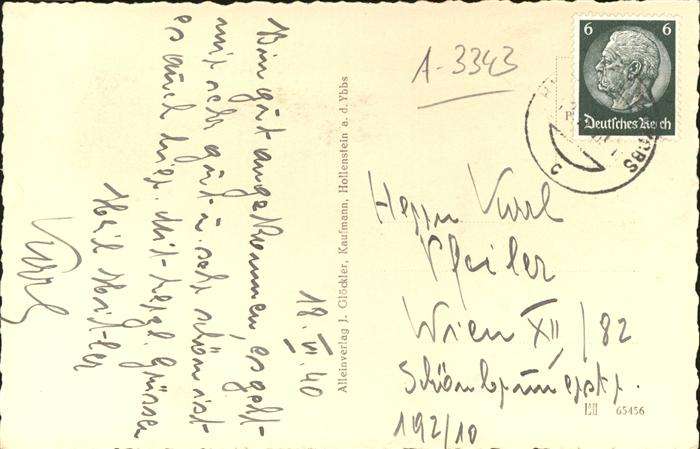 18. VI. 40
Bin gut angekommen, es geht
mir sehr gut u. sehr schön ist
es auch hier. Mit herzl. Grüssen
Heil Hitler
Karl
Alleinverlag J. Glöckler, Kaufmann, Hollenstein a. d. Ybbs
A-3343
6 6
Deutsches Reich
YBBS
Herrn Karl
Pfeiler
Wien XII / 82
Schönbrunnerstr.
192/10
65456